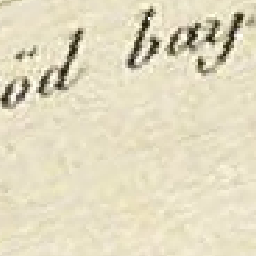 öd bay